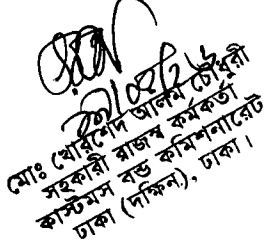 মোঃ খোরশেদ আলম চৌধুরী
সহকারী রাজস্ব কর্মকর্তা
কাস্টমস বন্ড কমিশনারেট
ঢাকা (দক্ষিন), ঢাকা।